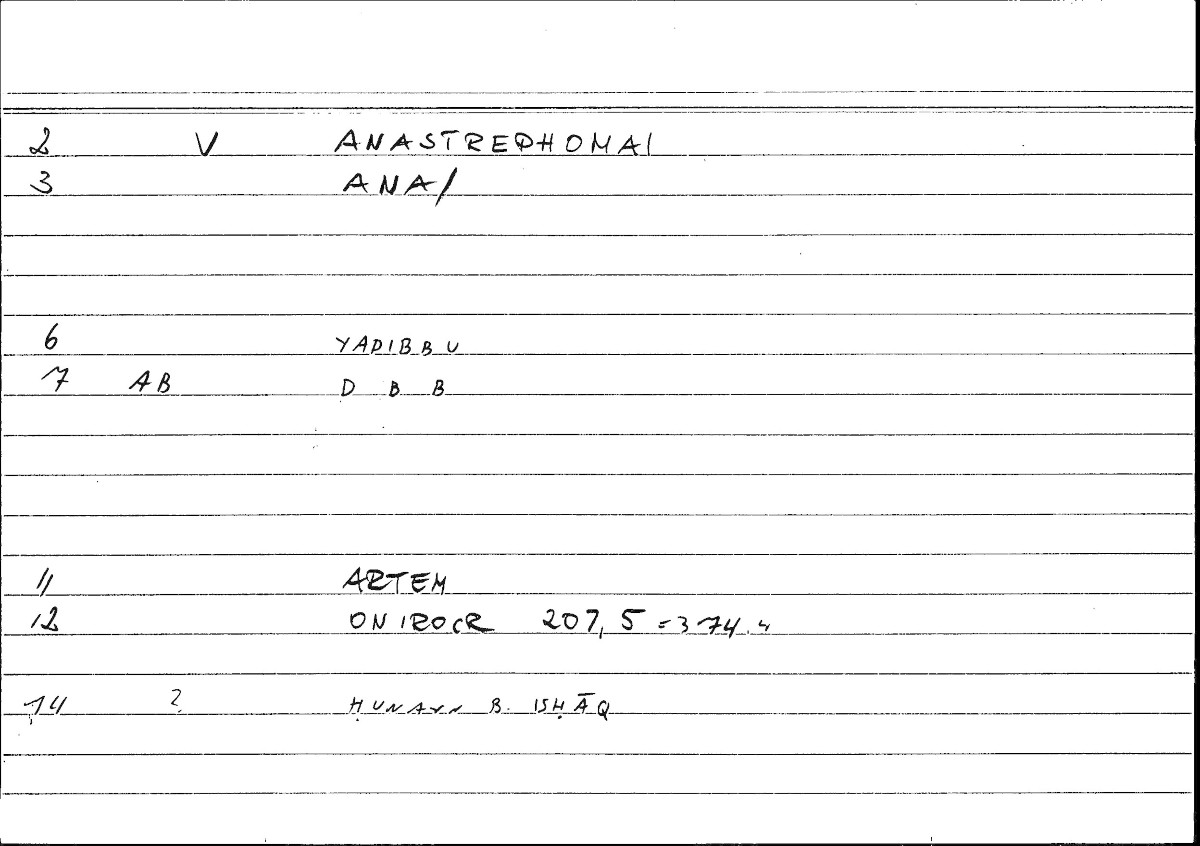 2 V ANASTREPHOMAI
3 ANA/
6 YADIBBU
7 AB D B B
11 ARTEM
12 ONIROCR 207,5 = 374.4
14 ? ḤUNAYN B. ISḤĀQ